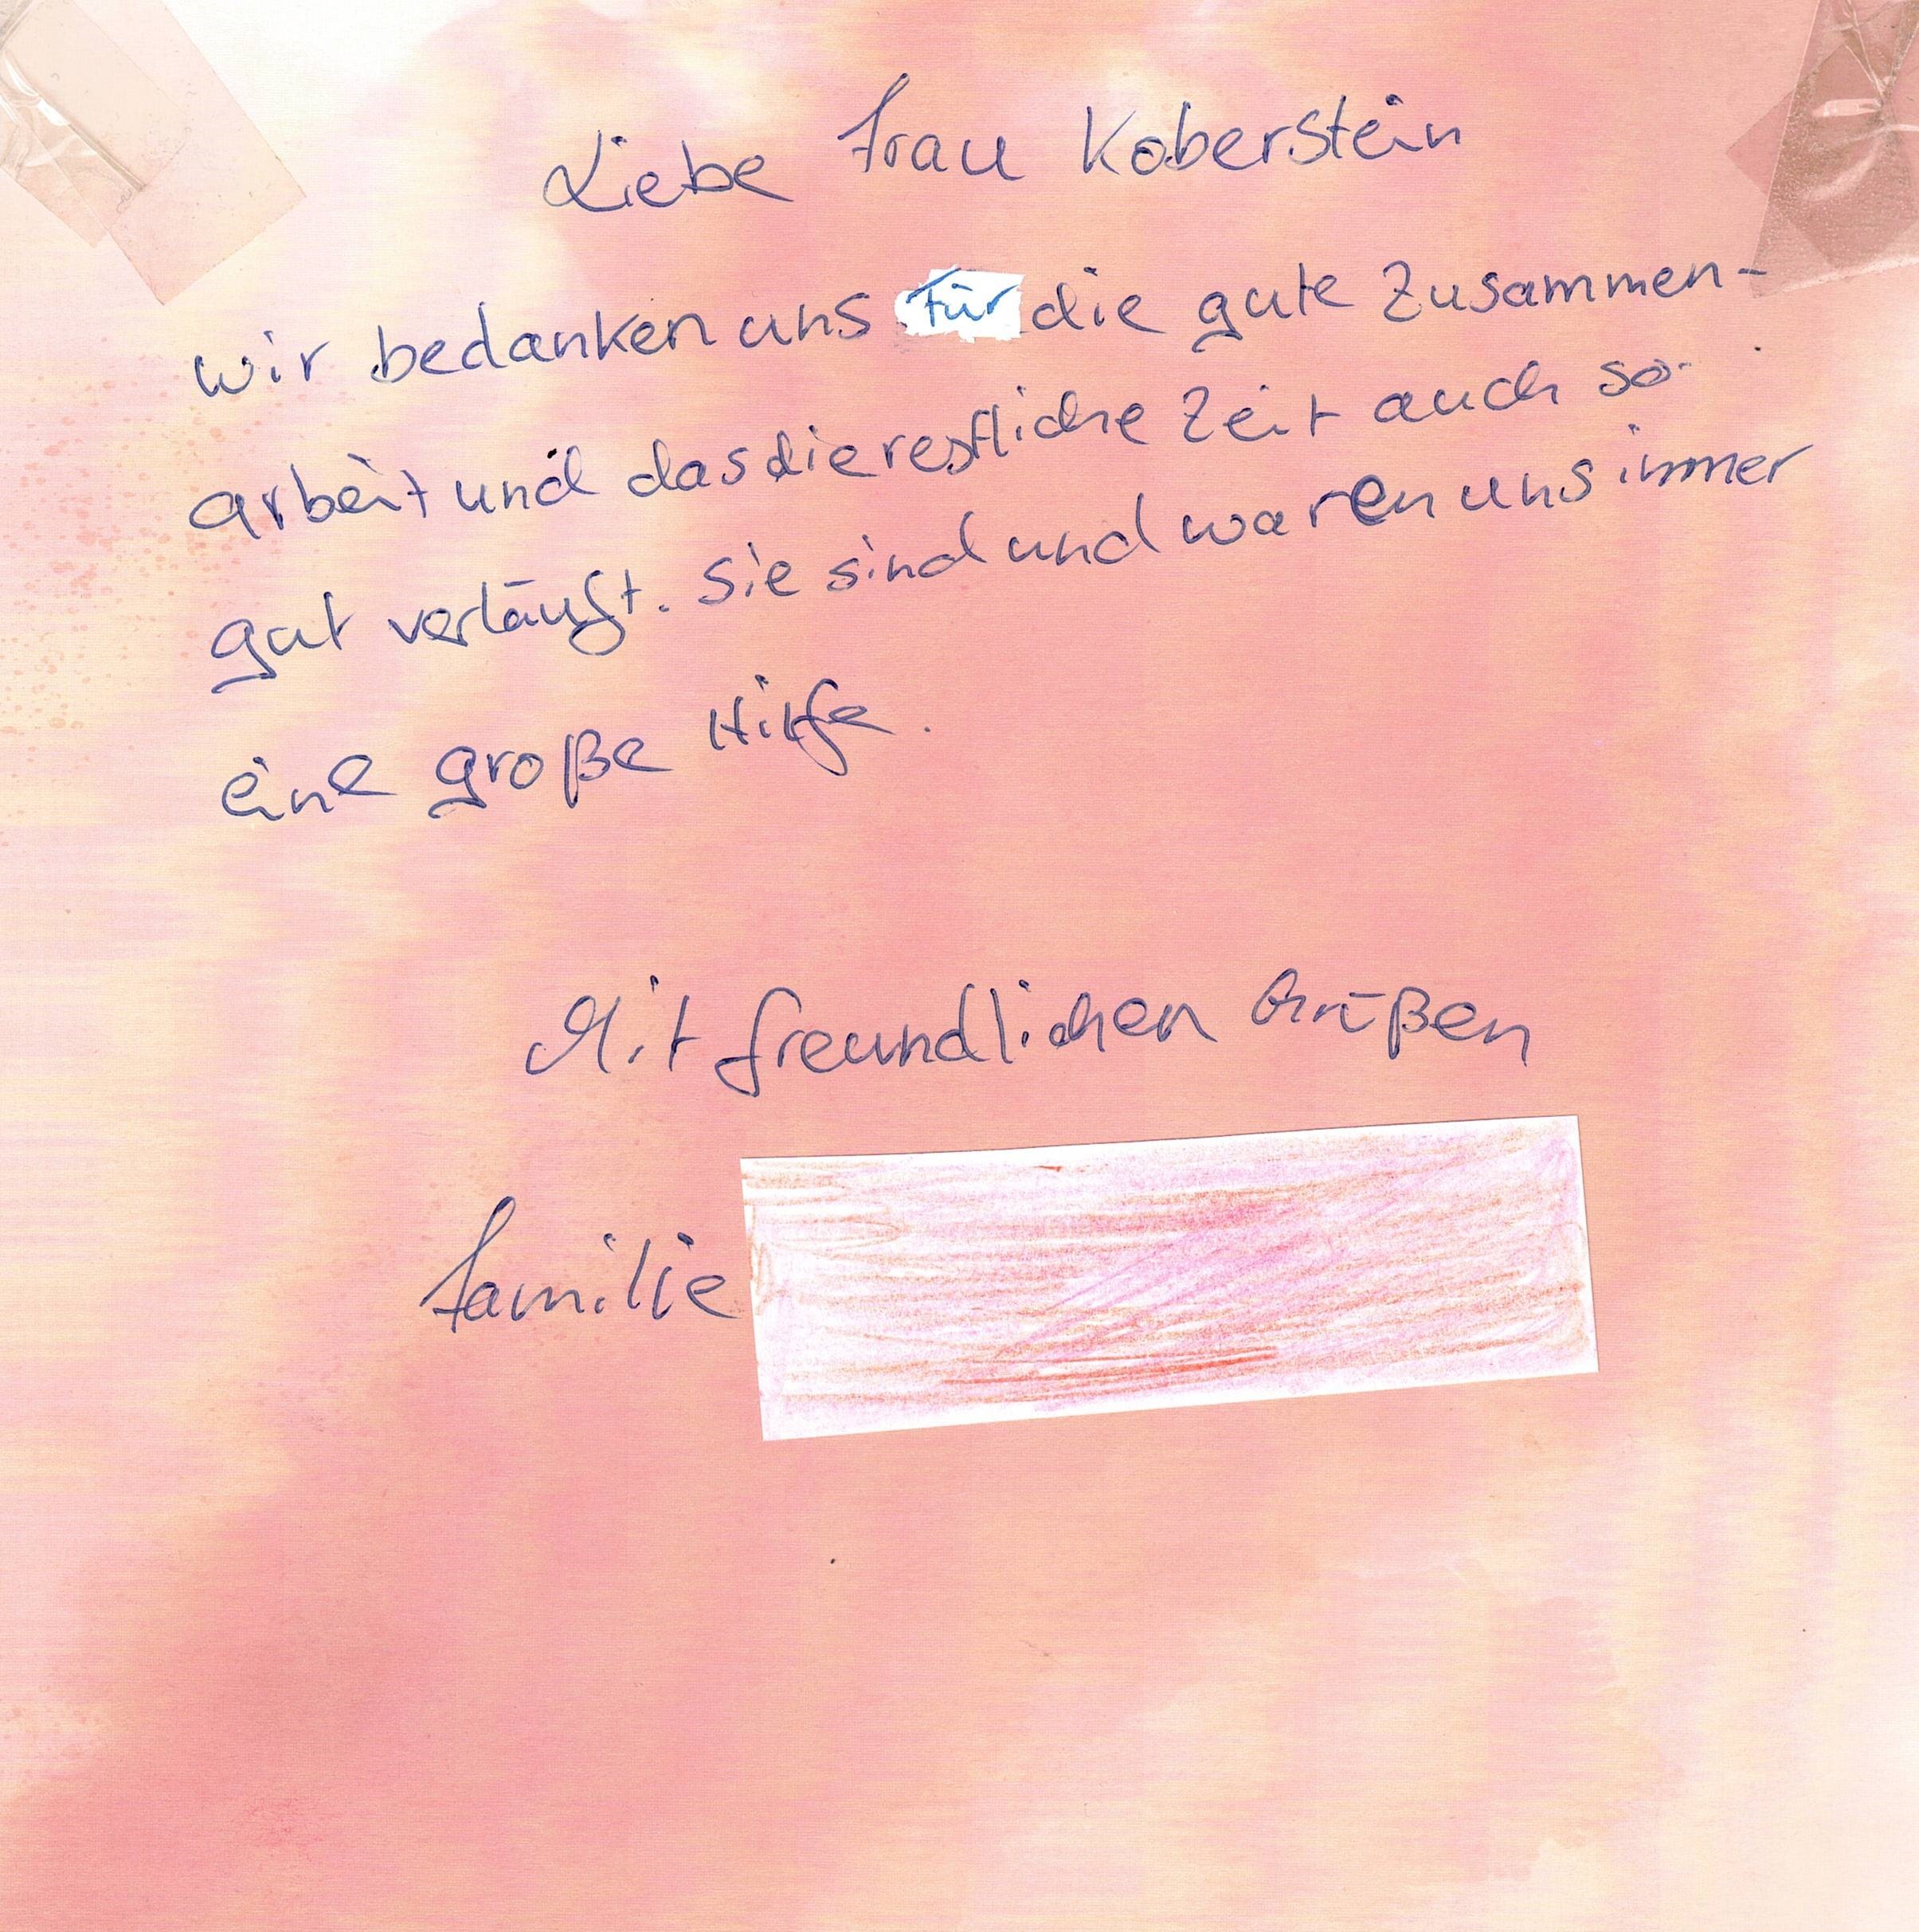 Liebe Frau Koberstein
wir bedanken uns Für die gute Zusammen-
arbeit und das die restliche Zeit auch so
gut verläuft. Sie sind und waren uns immer
eine große Hilfe.
Mit freundlichen Grüßen
Familie